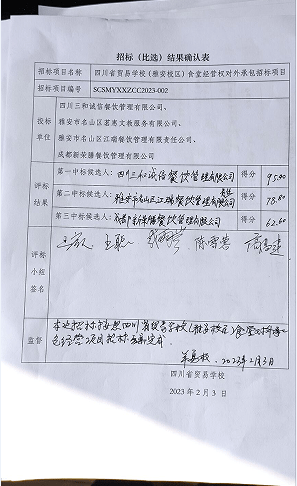 招标（比选）结果确认表
招标项目名称 四川省贸易学校（雅安校区）食堂经营权对外承包招标项目
招标项目编号 SCSMYXXZCC2023-002
投标单位
四川三和诚信餐饮管理有限公司、
雅安市名山区茗惠文教服务有限公司、
雅安市名山区江瑞餐饮管理有限责任公司、
成都新荣膳餐饮管理有限公司
评标结果
第一中标候选人：四川三和诚信餐饮管理有限公司 得分 95.00
第二中标候选人：雅安市名山区江瑞餐饮管理有限责任公司 得分 78.80
第三中标候选人：成都新荣膳餐饮管理有限公司 得分 62.60
评标小组签名
监督
本次招标按照四川省贸易学校（雅安校区）食堂对外承
包经营项目招标方案完成。
2023.2月3日
四川省贸易学校
2023 年 2 月 3 日